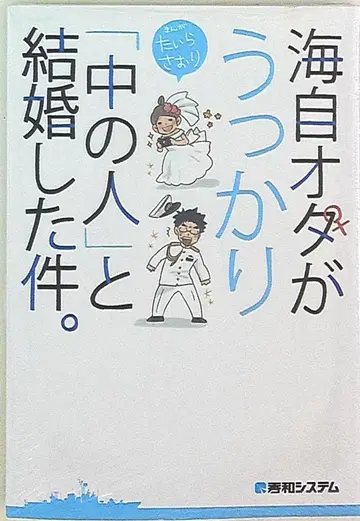 海自オタがうっかり
「中の人」と
結婚した件。
まんが
たいら
さおり
秀和システム